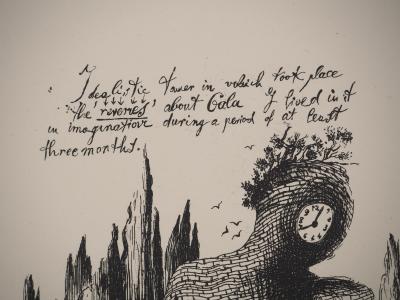 Idealistic Tower in which took place
the reveries about Gala I lived in it
in imagination during a period of at least
three months.